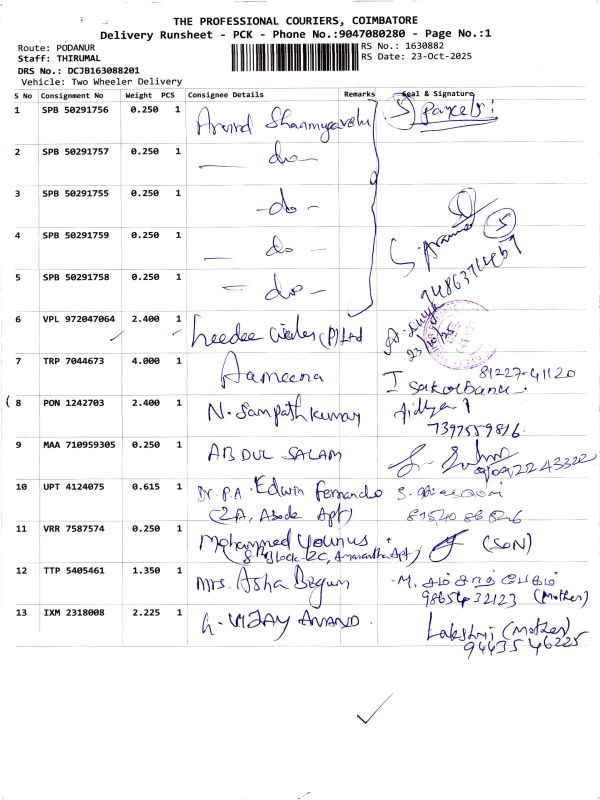 THE PROFESSIONAL COURIERS, COIMBATORE
Delivery Runsheet - PCK - Phone No.:9047080280 - Page No.:1
Route: PODANUR
Staff: THIRUMAL
DRS No.: DCJB163088201
Vehicle: Two Wheeler Delivery
RS No.: 1630882
RS Date: 23-Oct-2025
S No Consignment No Weight PCS Consignee Details Remarks Seal & Signature
1 SPB 50291756 0.250 1 Arvind 5 parcels!
2 SPB 50291757 0.250 1 — do —
3 SPB 50291755 0.250 1 - do -
4 SPB 50291759 0.250 1 — do — 5
5 SPB 50291758 0.250 1 — do —
6 VPL 972047064 2.400 1 (P) Ltd 23/10/25
7 TRP 7044673 4.000 1 Aameena 81227-41120
8 PON 1242703 2.400 1 N. Sampath kumar
7397559816
9 MAA 710959305 0.250 1 ABDUL SALAM
10 UPT 4124075 0.615 1 Dr. P.A. Edwin Fernando
(2A, Abode Apt)
11 VRR 7587574 0.250 1 Mohammed Younus (SON)
8th Block-2C, Amarantha Apt)
12 TTP 5405461 1.350 1 Mrs. Asha Begum
9865432123 (Mother)
13 IXM 2318008 2.225 1 VIJAY ANAND. Lakshmi (Mother)
9443546225